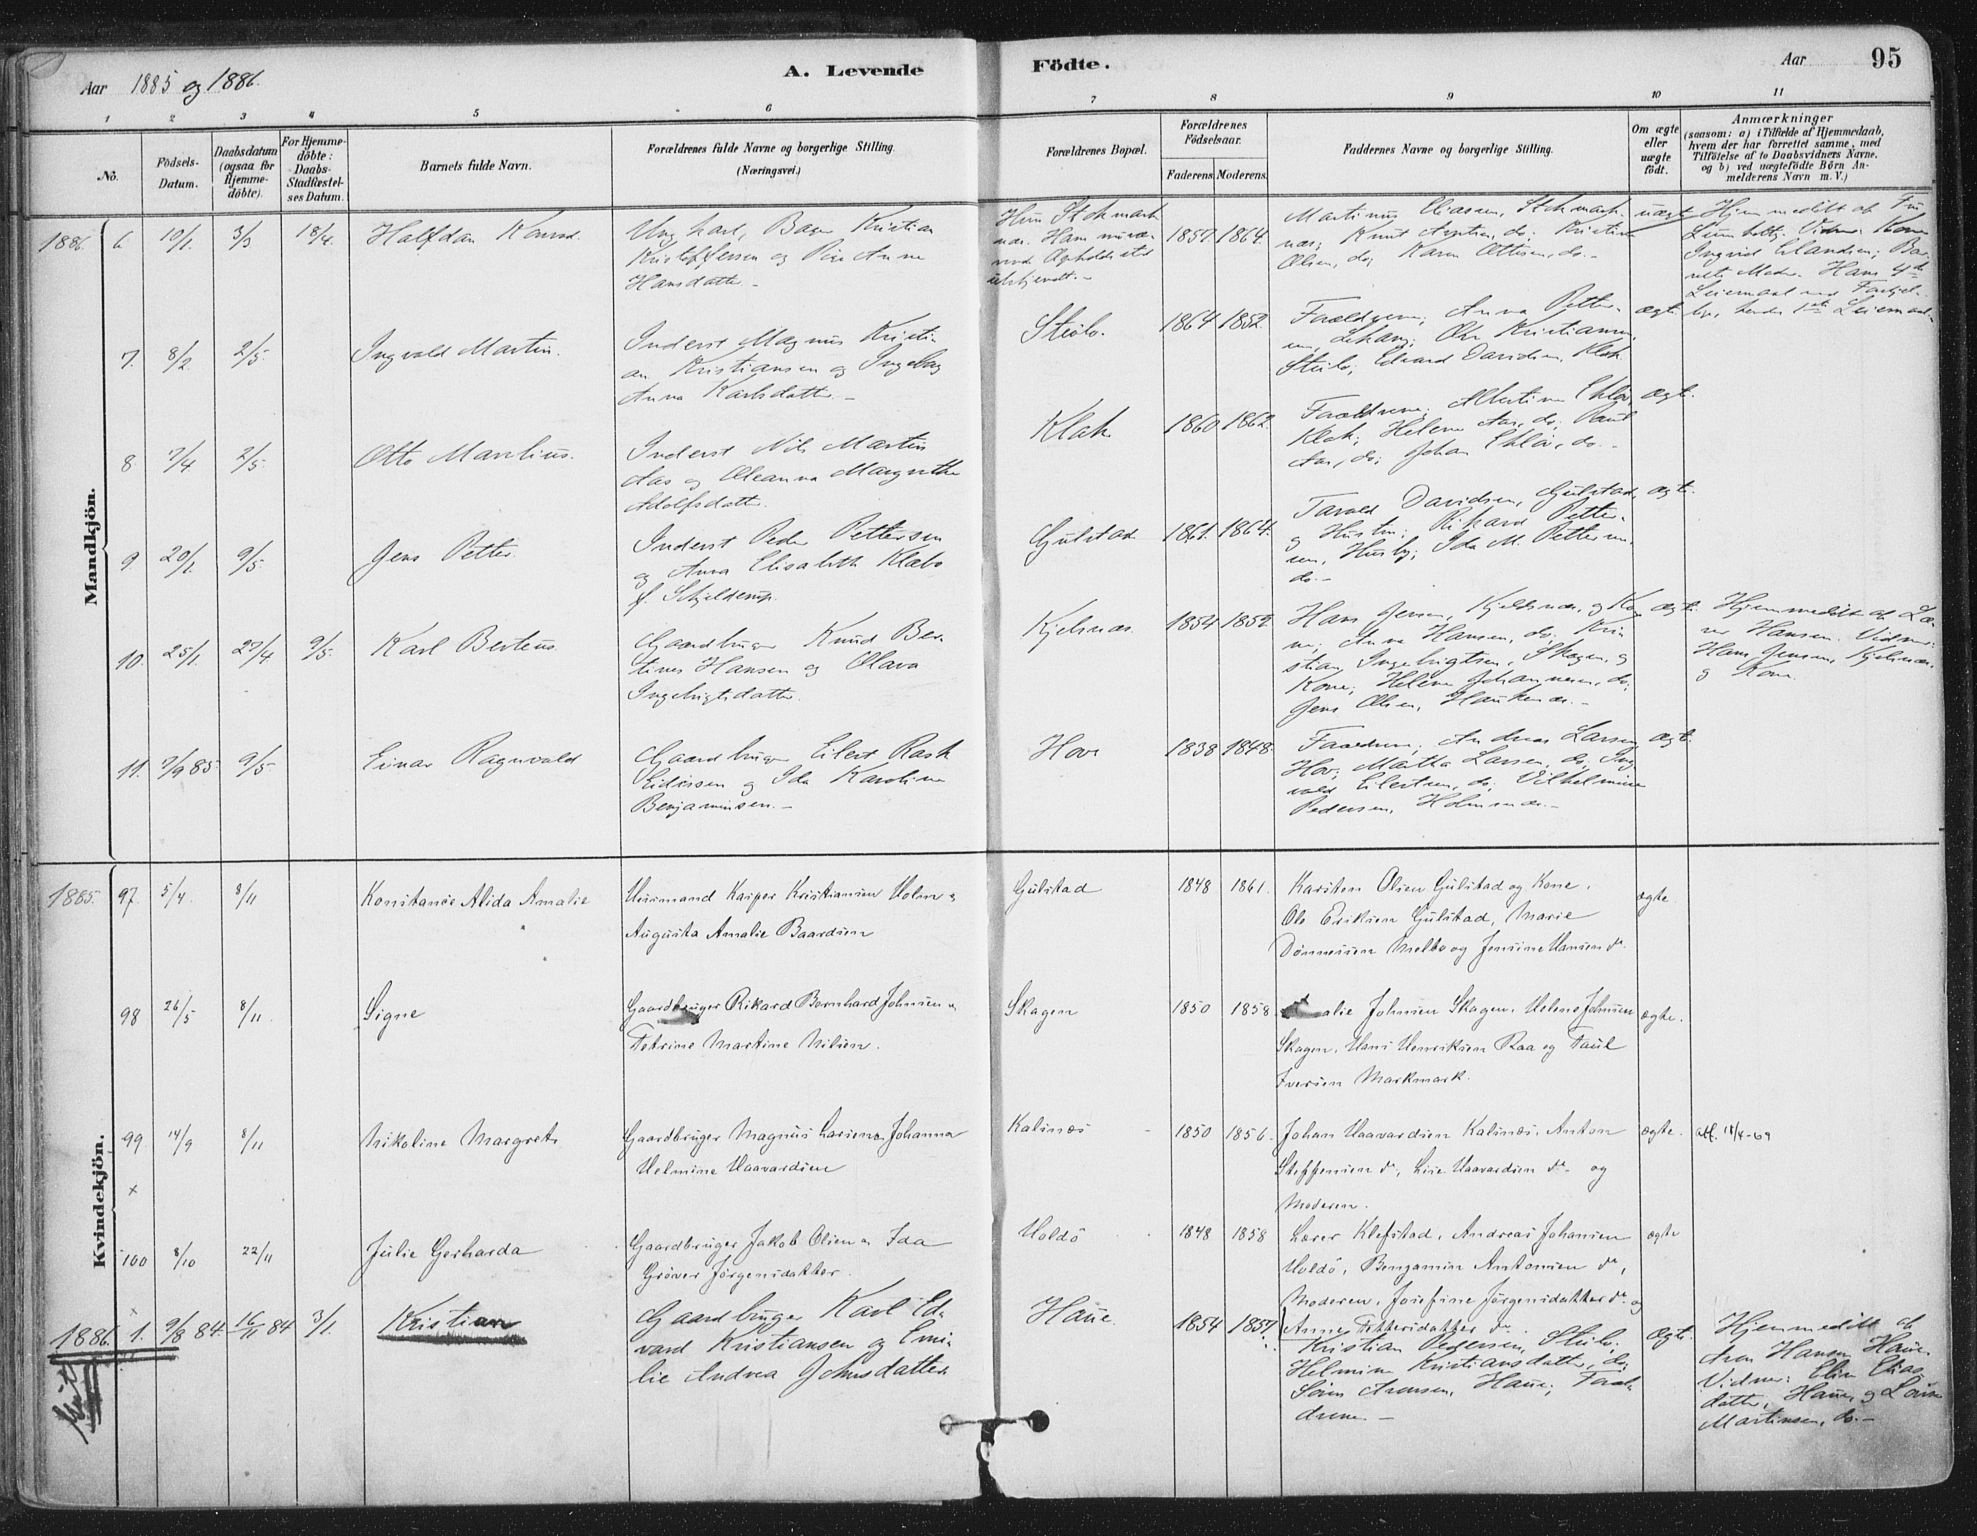 Aar 1885 og 1886.
A. Levende Födte.
Aar 95
1 2 3 4 5 6 7 8 9 10 11
No.
Födsels-Datum.
Daabsdatum (ogsaa for Hjemme-döbte).
For Hjemme-döbte: Daabs-Stadfæstel-ses Datum.
Barnets fulde Navn.
Forældrenes fulde Navne og borgerlige Stilling (Næringsvei.)
Forældrenes Bopæl.
Forældrenes Födselsaar.
Faderens. Moderens.
Faddernes Navne og borgerlige Stilling.
Om ægte eller uægte födt.
Anmærkninger
(saasom: a) i Tilfælde af Hjemmedaab,
hvem der har forrettet samme, med
Tilföielse af to Daabsvidners Navne.
og b) ved uægtefödte Börn An-
melderens Navn m. V.)
Mandkjön.
1886 6 10/1. 3/3 18/4. Halfdan Konrad
Ungkarl, Kristian
Kristoffersen og Pige Anna
Hansdatter.
1857. 1864.
Martinus Eliassen, Stokmark-
næs; Knut do; Kristine
Olsen, do; Karen Ottesen, do.
uægte
Hjemmedöbt af
7. 8/2 2/5. Ingvald Martin.
Inderst Magnus Kristi-
an Kristiansen og Ingeborg
Anna Karlsdatter.
Steilo. 1864 1852.
Forældrene; Anna Petter-
sen, Ole Kristiansen,
Steilo; Edvard Davidsen, Klak.
ægte
8. 7/4 2/5. Otto Marelius.
Inderst Nils Martin
Aas og Oleanna Margrethe
Adolfsdatter.
Klak 1860 1862.
Forældrene; Albertine
Klak; Helene Aas, do; Paul
Aas, do; Johan do.
ægte.
9 20/1. 9/5. Jens Petter.
Inderst Peder Pettersen
og Anna Elisabeth Klæbo
f. Schjelderup.
Gulstad 1861. 1864.
Davidsen, Gulstad
og Hustru; Rikard Petter-
sen, Husby; Ida M. Petter-
sen, do.
ægte.
10. 25/1. 27/4 9/5. Karl Berteus.
Gaardbruger Knud Ber-
tinus Hansen og Olava
Ingebrigtsdatter.
Kjelsnæs. 1854 1852.
Hans Jensen, Kjeldsnæs, og Ko-
ne, Anna Hansen, do; Kri-
stian Ingebrigtsen, Skagen, og
Kone; Helene Johannesen, do;
Jens Olsen, Haukenæs.
ægte.
Hjemmedöbt af Læ-
rer Hansen. Vidner:
Hans Jensen, Kjelsnæs
og Kone.
11. 7/9 85 9/5. Einar Ragnvald
Gaardbruger Eilert Rask
Eidissen og Ida Karoline
Benjaminsen.
Hov 1838 1848.
Forældrene; Andreas Larsen,
Hov; Martha Larsen, do; Ing-
vald Eilertsen, do; Vilhelmine
Pedersen, Holmsnæs.
ægte.
Kvindekjön.
1885. 97. 5/4. 8/11 Konstance Alida Amalie
Huusmand Kasper Kristiansen Holm &
Augusta Amalie Baardsen
Gulstad 1848 1861.
Karsten Olsen Gulstad og Kone.
Ole Eriksen Gulstad, Marie
Dönnesen Melbo og Jensine Hansen do.
ægte
98 26/5 8/11. Signe
Gaardbruger Rikard Bernhard Johnsen &
Petrine Martine Nilsen.
Skagen 1850 1858.
Johnsen Skagen. Helene Johnsen
Skagen. Hans Henriksen Raa og Paul
Iversen Markmark.
ægte.
99. 14/9 8/11 Nikoline Margrete
Gaardbruger Magnus Larsen & Johanna
Helmine Haavardsen
Kalsnæs 1850 1856.
Johan Haavardsen Kalsnæs. Anton
Steffensen do, Lise Haavardsen do og
Moderen.
ægte. att. 18/4-69
100 8/10 22/11 Julie Gerharda
Gaardbruger Jakob Olsen & Ida
Gröver Jörgensdatter.
Holdö 1848 1858
Lærer Klefstad, Andreas Johansen
Holdö, Benjamin Antonsen do,
Moderen, Josefine Jörgensdatter do og
Anne Pettersdatter do.
ægte
1886. 1. 9/8 84. 16/11 84 3/1. Kristian
Gaardbruger Karl Ed-
vard Kristiansen og Emi-
lie Andrea Johnsdatter
Haue. 1854 1857.
Kristian Pedersen, Steilo;
Helmine Kristiansdatter, do;
Sören Aronsen, Haue; Foræl-
drene
ægte.
Hjemmedöbt af
Aron Hansen Haue.
Vidner: Elen Elias-
datter, Haue, og Lovise
Martinsen, do.